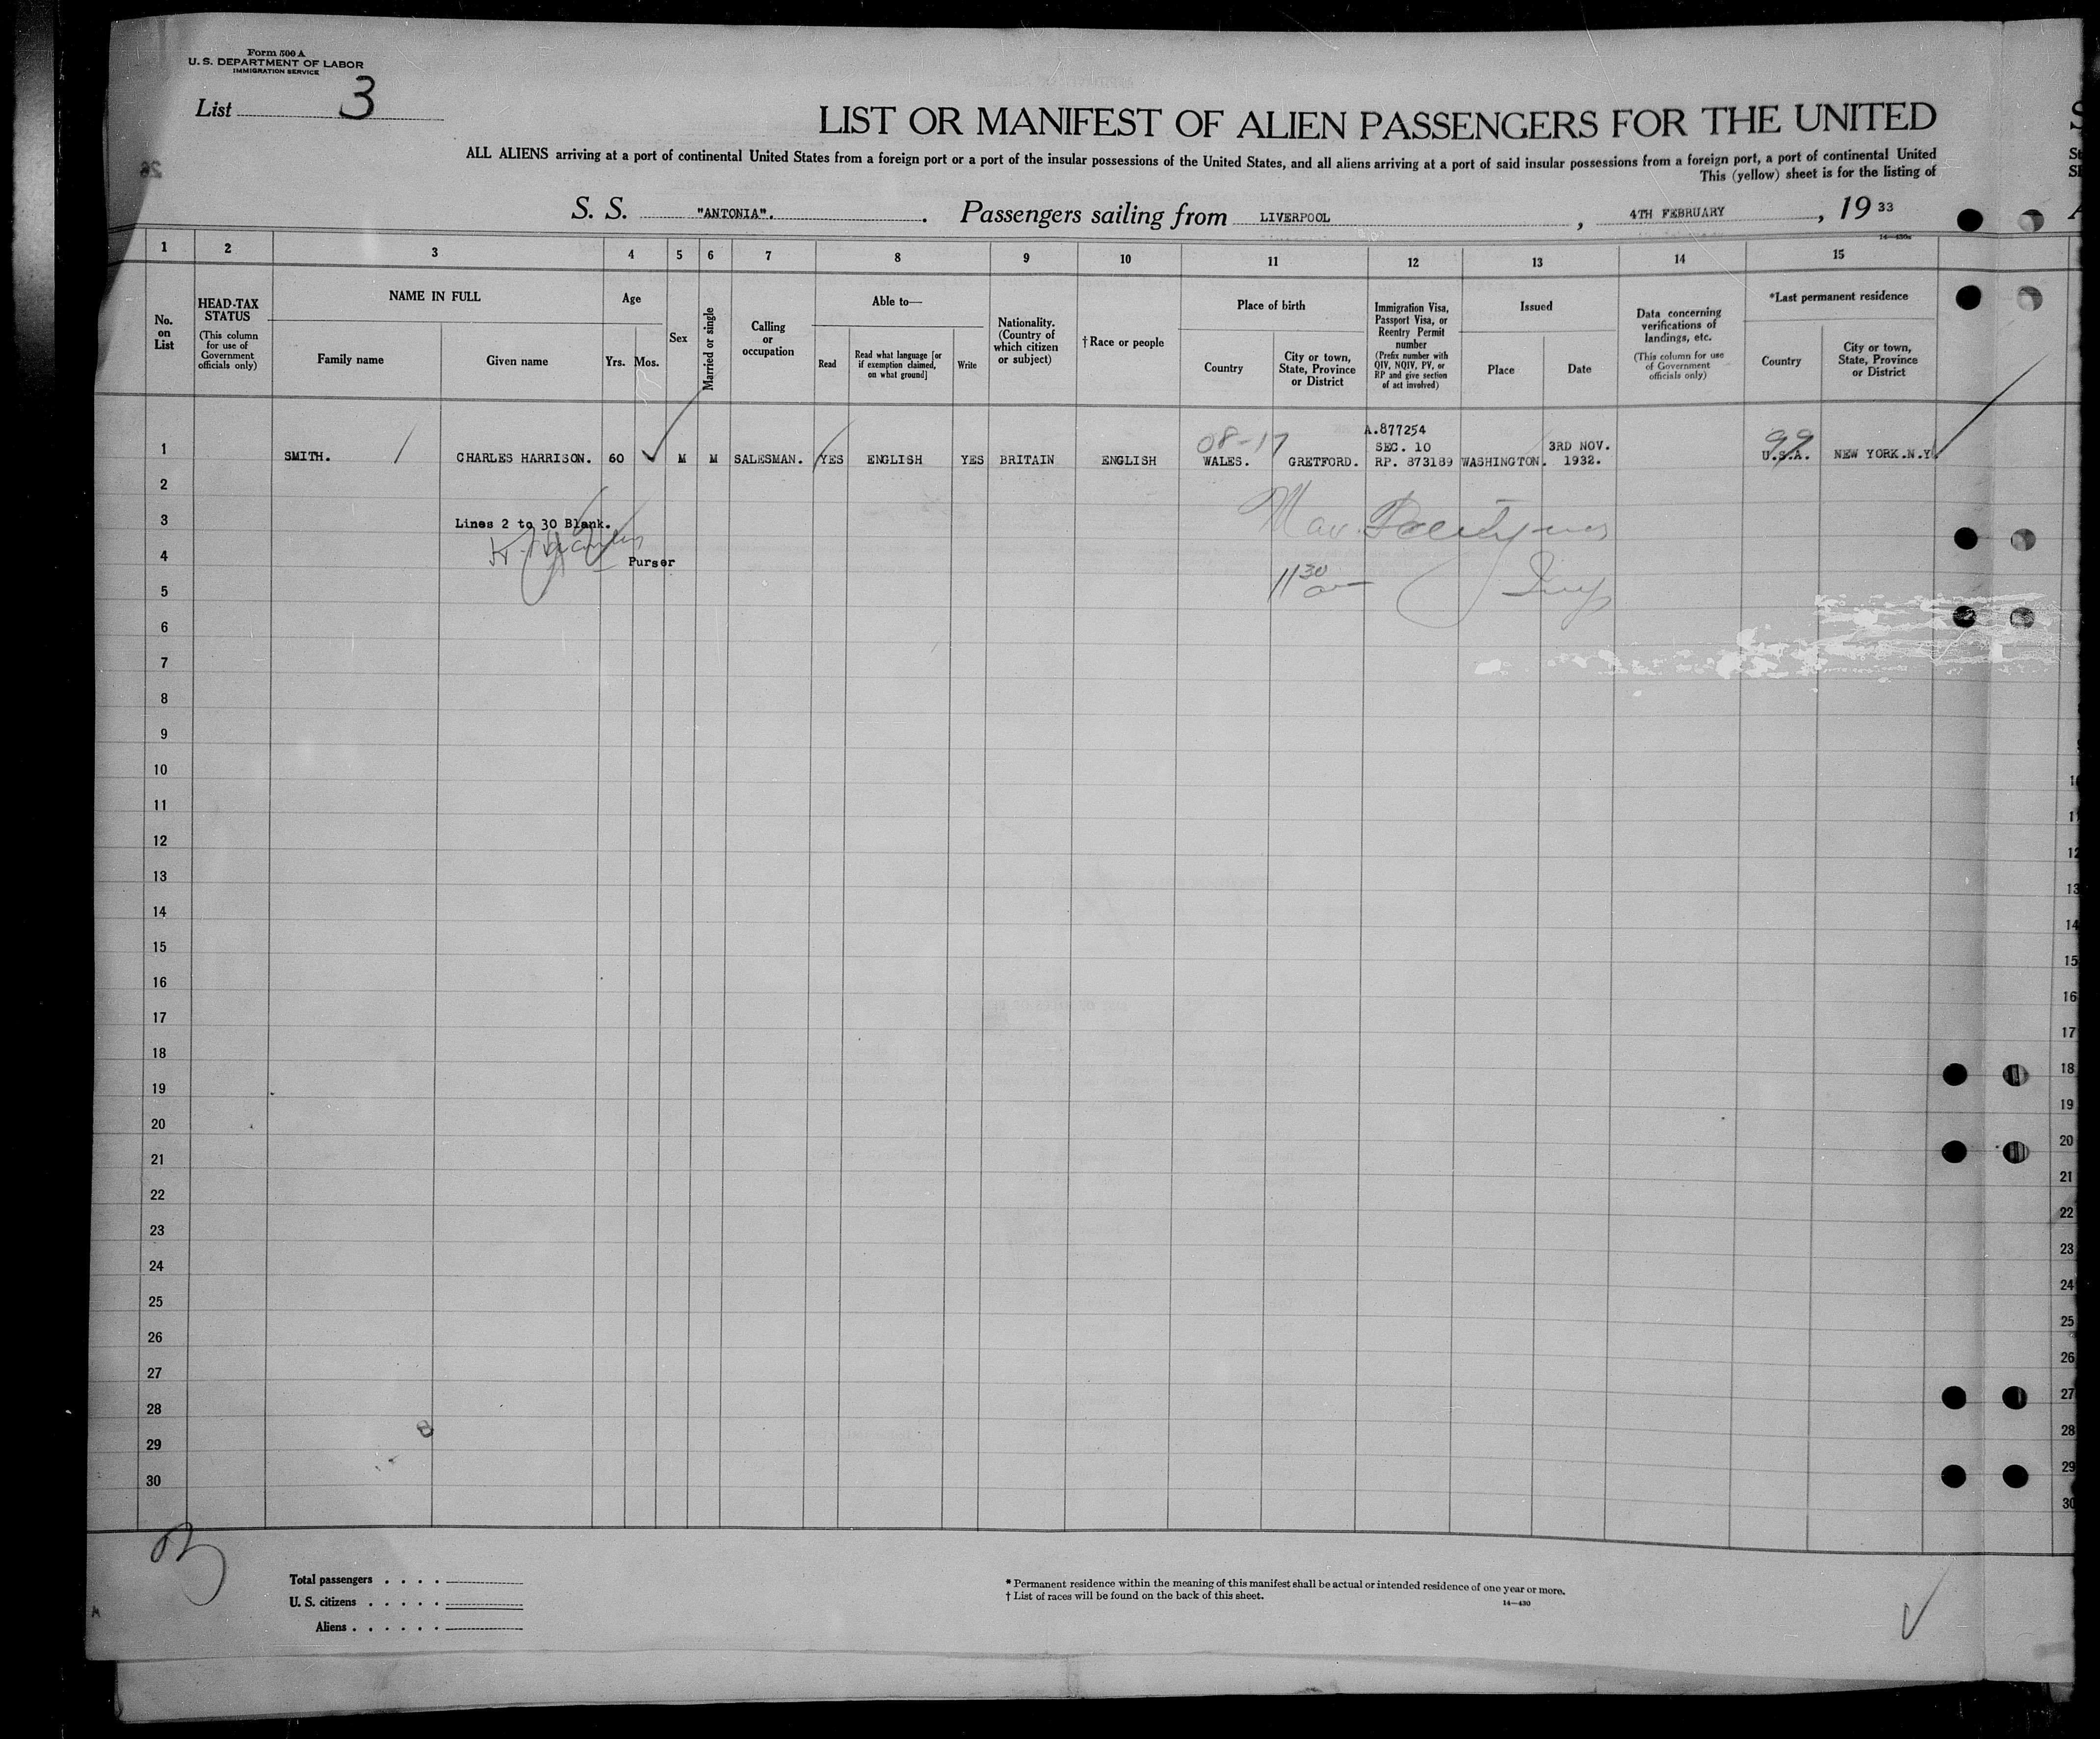 Form 500 A
U. S. DEPARTMENT OF LABOR
IMMIGRATION SERVICE
List 3
LIST OR MANIFEST OF ALIEN PASSENGERS FOR THE UNITED
ALL ALIENS arriving at a port of continental United States from a foreign port or a port of the insular possessions of the United States, and all aliens arriving at a port of said insular possessions from a foreign port, a port of continental United
This (yellow) sheet is for the listing of
S. S. "ANTONIA". Passengers sailing from LIVERPOOL, 4TH FEBRUARY, 1933
14—430a
1 2 3 4 5 6 7 8 9 10 11 12 13 14 15
No. on List
HEAD-TAX STATUS
(This column for use of Government officials only)
NAME IN FULL
Family name
Given name
Age
Yrs. Mos.
Sex
Married or single
Calling or occupation
Able to—
Read
Read what language [or if exemption claimed, on what ground]
Write
Nationality. (Country of which citizen or subject)
†Race or people
Place of birth
Country
City or town, State, Province or District
Immigration Visa, Passport Visa, or Reentry Permit number
(Prefix number with QIV, NQIV, PV, or RP and give section of act involved)
Issued
Place
Date
Data concerning verifications of landings, etc.
(This column for use of Government officials only)
*Last permanent residence
Country
City or town, State, Province or District
08-17 A.877254 99
SEC. 10 3RD NOV.
1 SMITH. CHARLES HARRISON. 60 M M SALESMAN. YES ENGLISH YES BRITAIN ENGLISH WALES. GRETFORD. RP. 873189 WASHINGTON. 1932. U.S.A. NEW YORK.N.Y
2
3 Lines 2 to 30 Blank.
4 Purser
5 11 30
6
7
8
9
10
11
12
13
14
15
16
17
18
19
20
21
22
23
24
25
26
27
28
29
30
Total passengers . . . .
U. S. citizens . . . . .
Aliens . . . . . .
* Permanent residence within the meaning of this manifest shall be actual or intended residence of one year or more.
† List of races will be found on the back of this sheet.
14—430